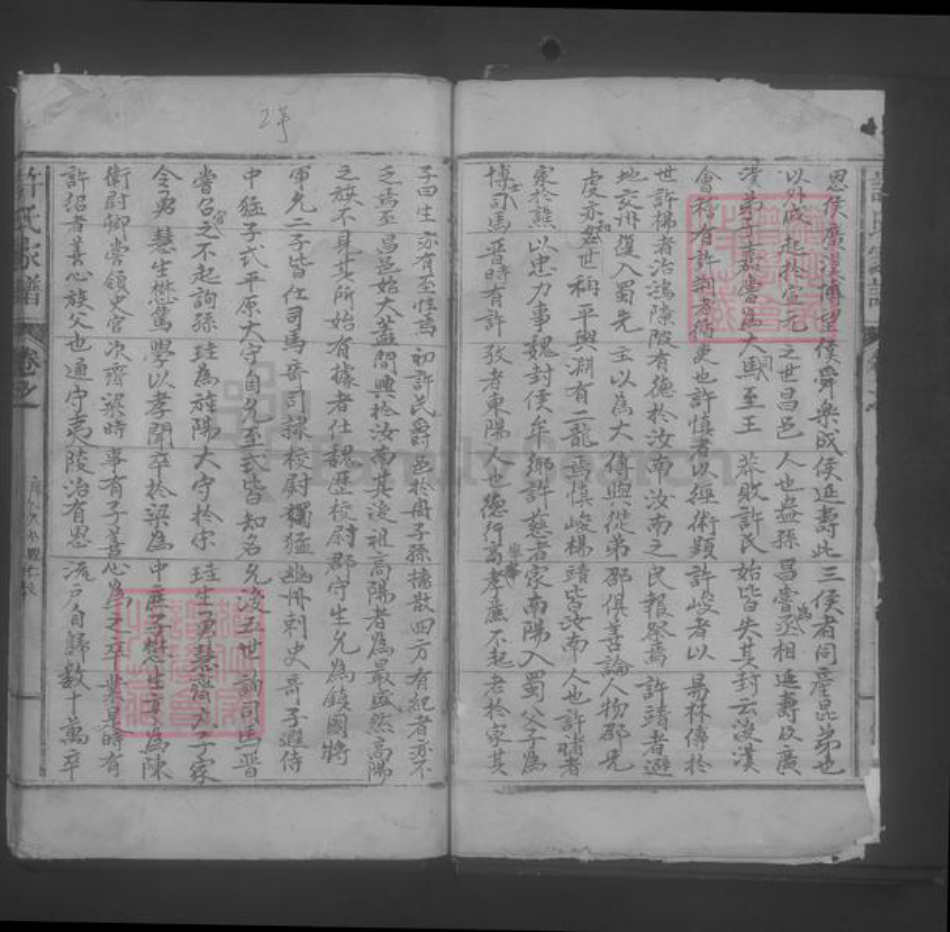 恩侯廣漢博望侯舜樂成侯延壽此三侯者同產昆弟也
以外戚起於宣元之世昌邑人也盎孫昌嘗為丞相延壽及廣
漢弟子嘉嘗為大司馬至王莽敗許氏始皆失其封云後漢
會稽有許荆者術吏也許慎者以經術顯許峻者以易林傳於
世許楊者治鴻隙陂有德於汝南汝南之民報祭焉許靖者避
地交州復入蜀先主以為大傅與從弟邵俱善論人物邵兄
虔亦知名世稱平輿淵有二龍焉慎峻楊靖皆汝南人也許褚者
家於譙以忠力事魏封侯牟鄉許慈者家南陽入蜀父子為
博士司馬晉時有許孜者東陽人也德行高舉孝廉不起老於家其
子曰生亦有至性焉初許氏爵邑於周子孫播散四方有紀者亦不
乏焉至昌邑始大蓋間興於汝南其後祖高陽者為最盛然高陽
之族不見其所始有據者仕魏歷校尉郡守生允為鎮國將
軍允二子皆仕司馬哥司隸校尉獨猛幽州刺史哥子遐侍
中猛子式平原大守自允至式皆知名允後五世詢司馬晉
嘗召官之不起詢孫珪為旌陽大守於宋珪生勇慧齊大子家
令勇慧生懋篤學以孝聞卒於梁為中庶子懋生亨為陳
衛尉卿嘗領史官次齊梁時事有子善心為之卒業是時有
許紹者善心族父也通守夷陵治有恩流戶自歸數十萬卒
許氏家譜
卷之一
FamilySearch